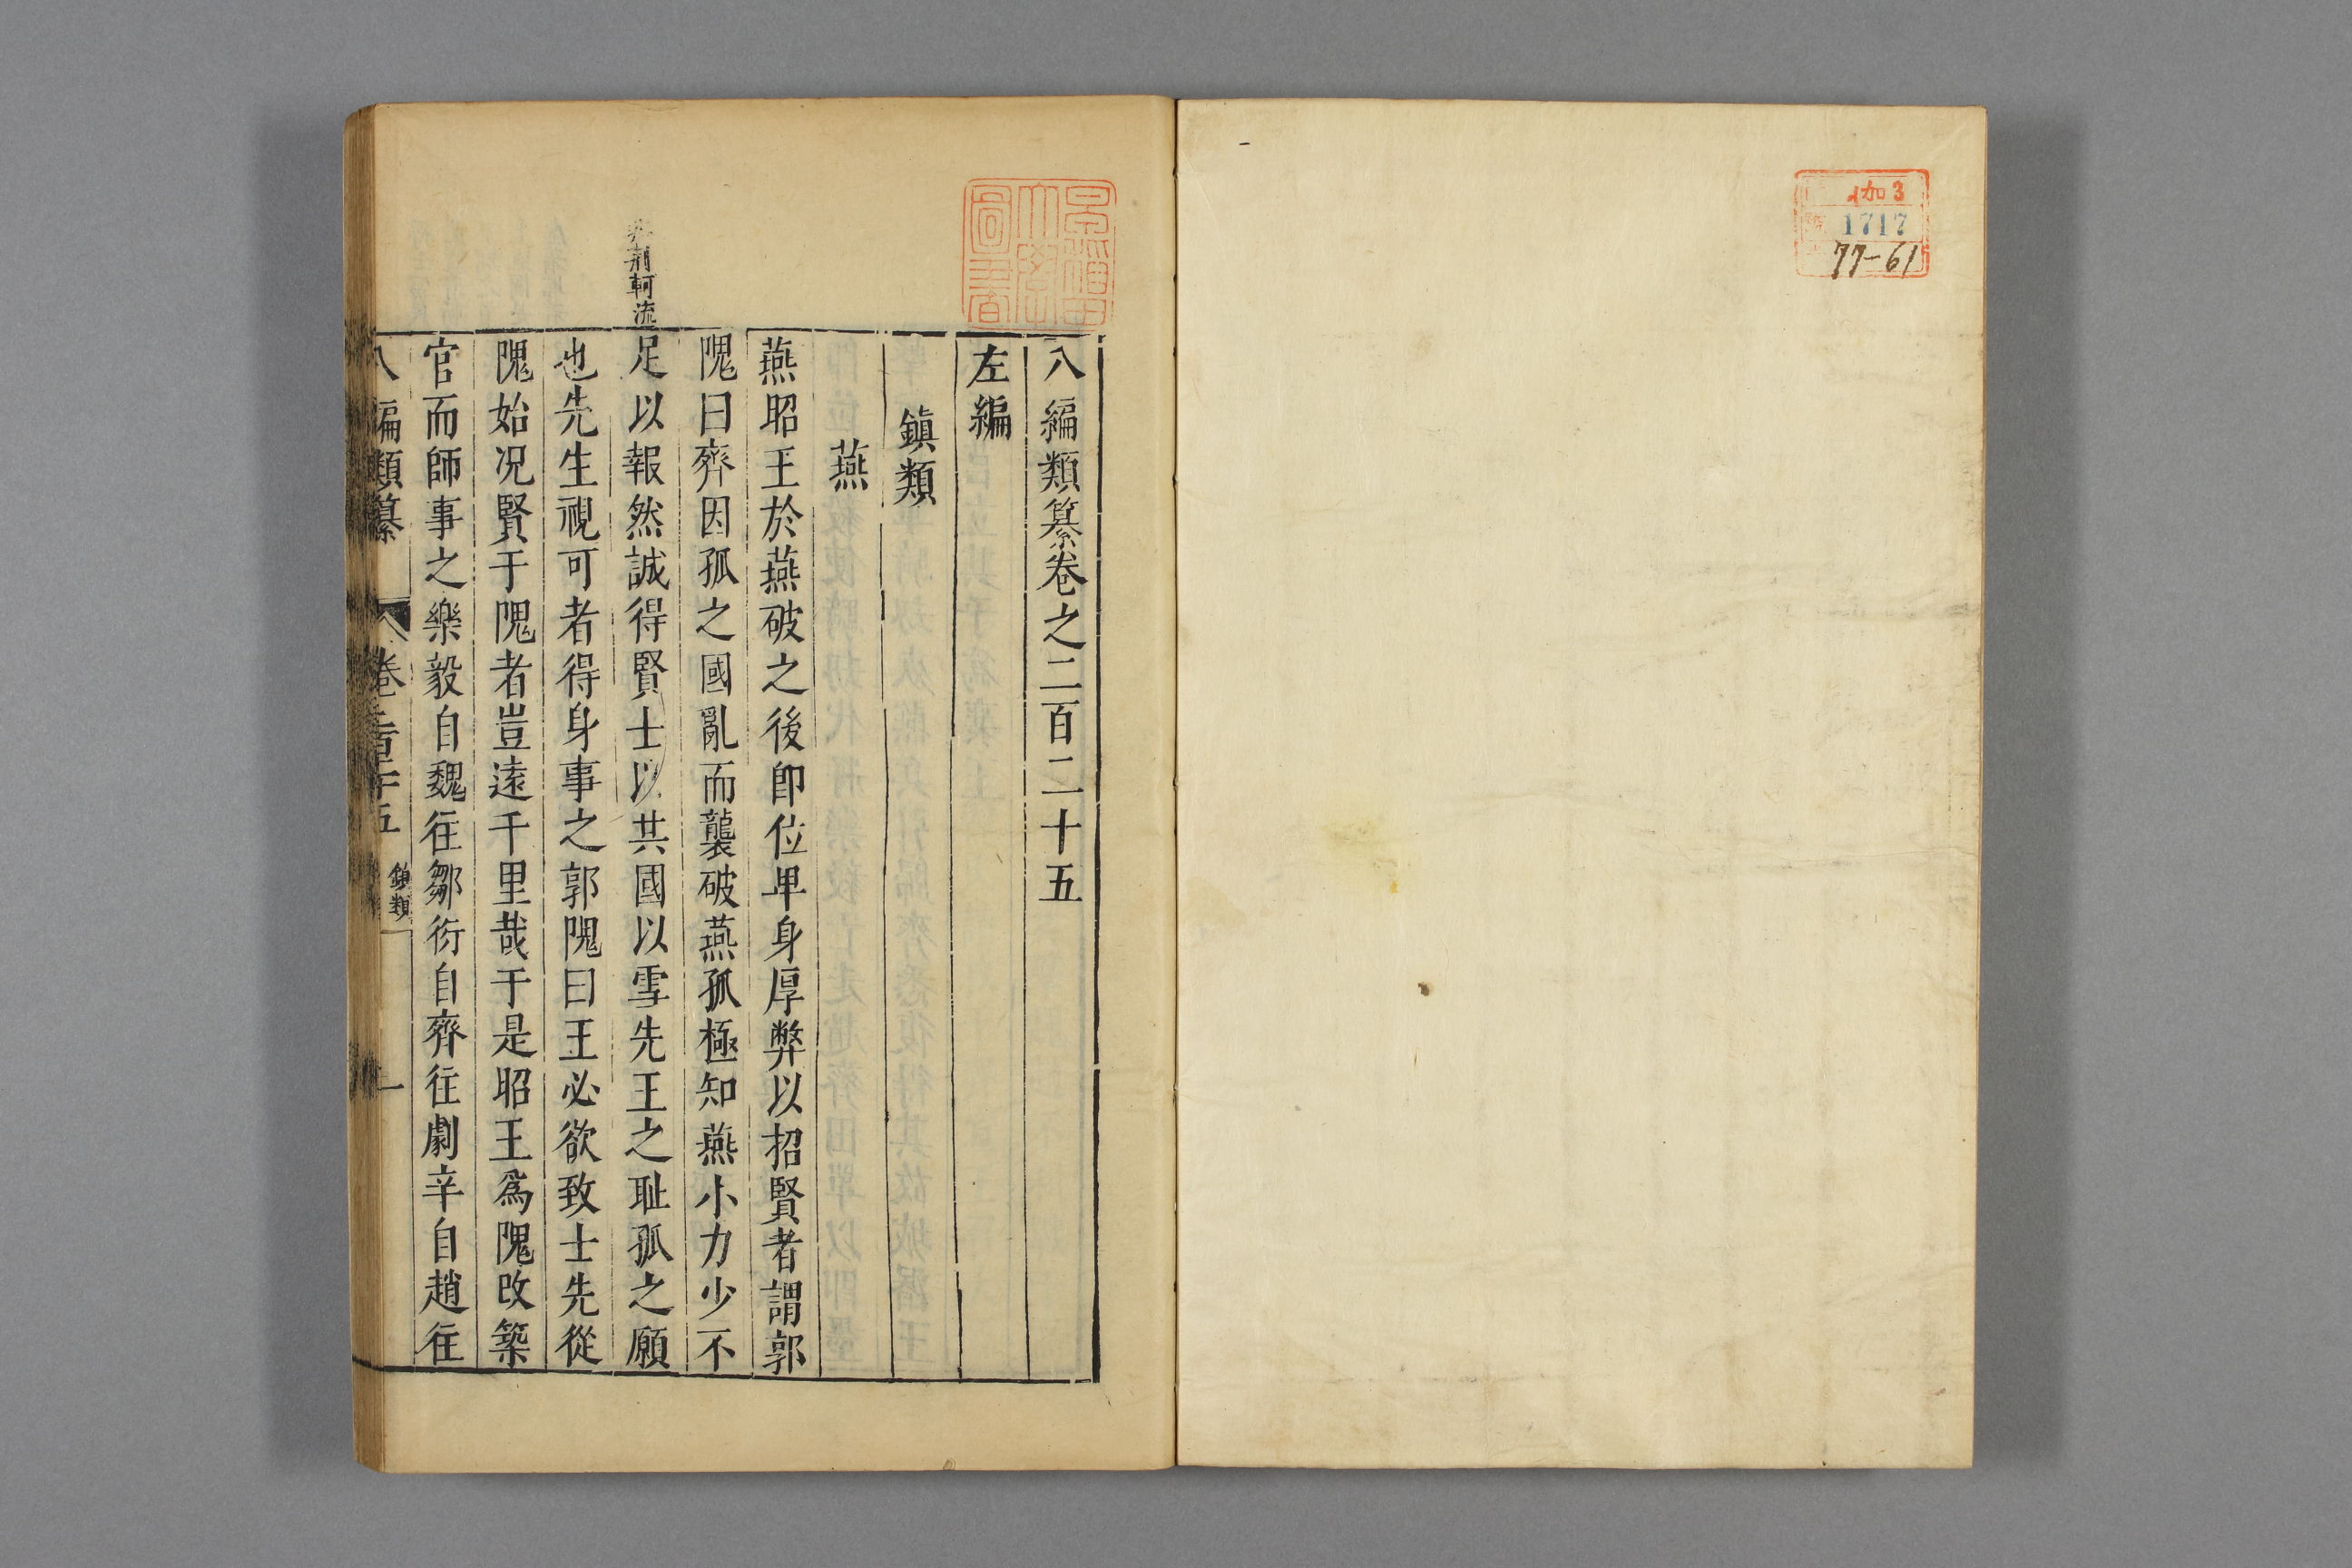 伽3
1717
77-61
早稲田
大學
圖書
八編類纂卷之二百二十五
左編
鎮類
燕
燕昭王於燕破之後卽位卑身厚弊以招賢者謂郭
隗曰齊因孤之國亂而襲破燕孤極知燕小力少不
荆軻流
足以報然誠得賢士以共國以雪先王之耻孤之願
也先生視可者得身事之郭隗曰王必欲致士先從
隗始况賢于隗者豈遠千里哉于是昭王爲隗改築
官而師事之樂毅自魏往鄒衍自齊往劇辛自趙往
八編類纂 卷二百二十五 鎮類 一